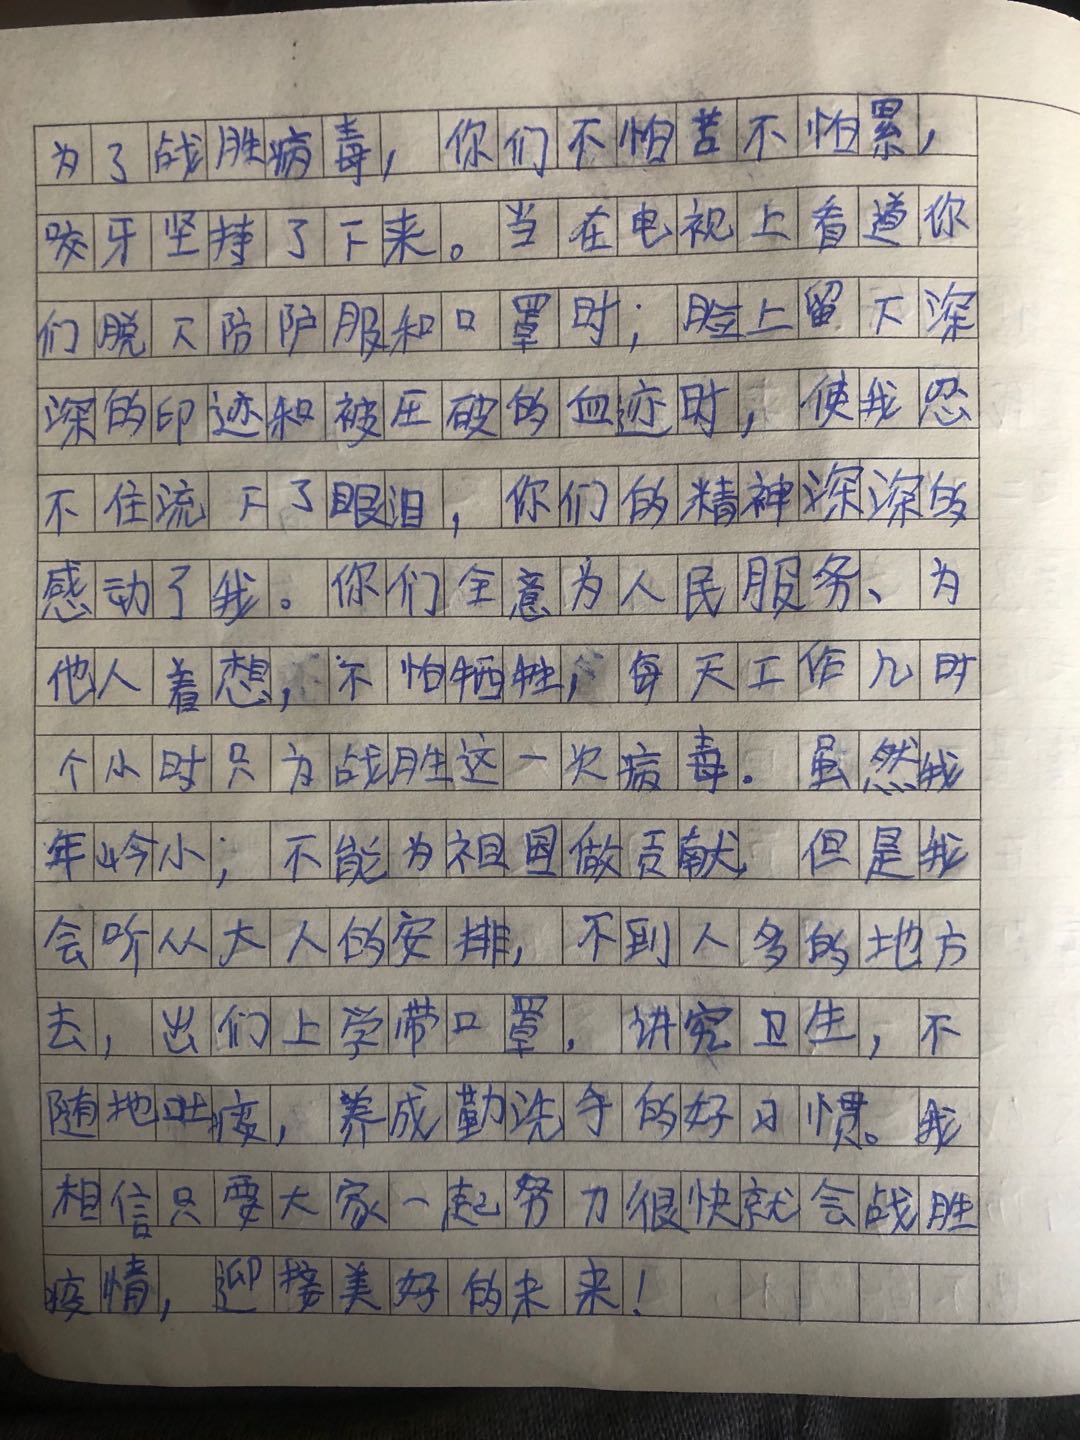 为了战胜病毒，你们不怕苦不怕累，
咬牙坚持了下来。当在电视上看遵你
们脱下防护服和口罩时；脸上留下深
深的印迹和被压破的血迹时，使我忍
不住流下了眼泪，你们的精神深深的
感动了我。你们全意为人民服务、为
他人着想，不怕牺牲，每天工作几时
个小时只为战胜这一次病毒。虽然我
年岭小；不能为祖国做贡献，但是我
会听从大人的安排，不到人多的地方
去，出们上学带口罩，讲究卫生，不
随地吐痰，养成勤洗手的好习惯。我
相信只要大家一起努力很快就会战胜
疫情，迎接美好的未来！